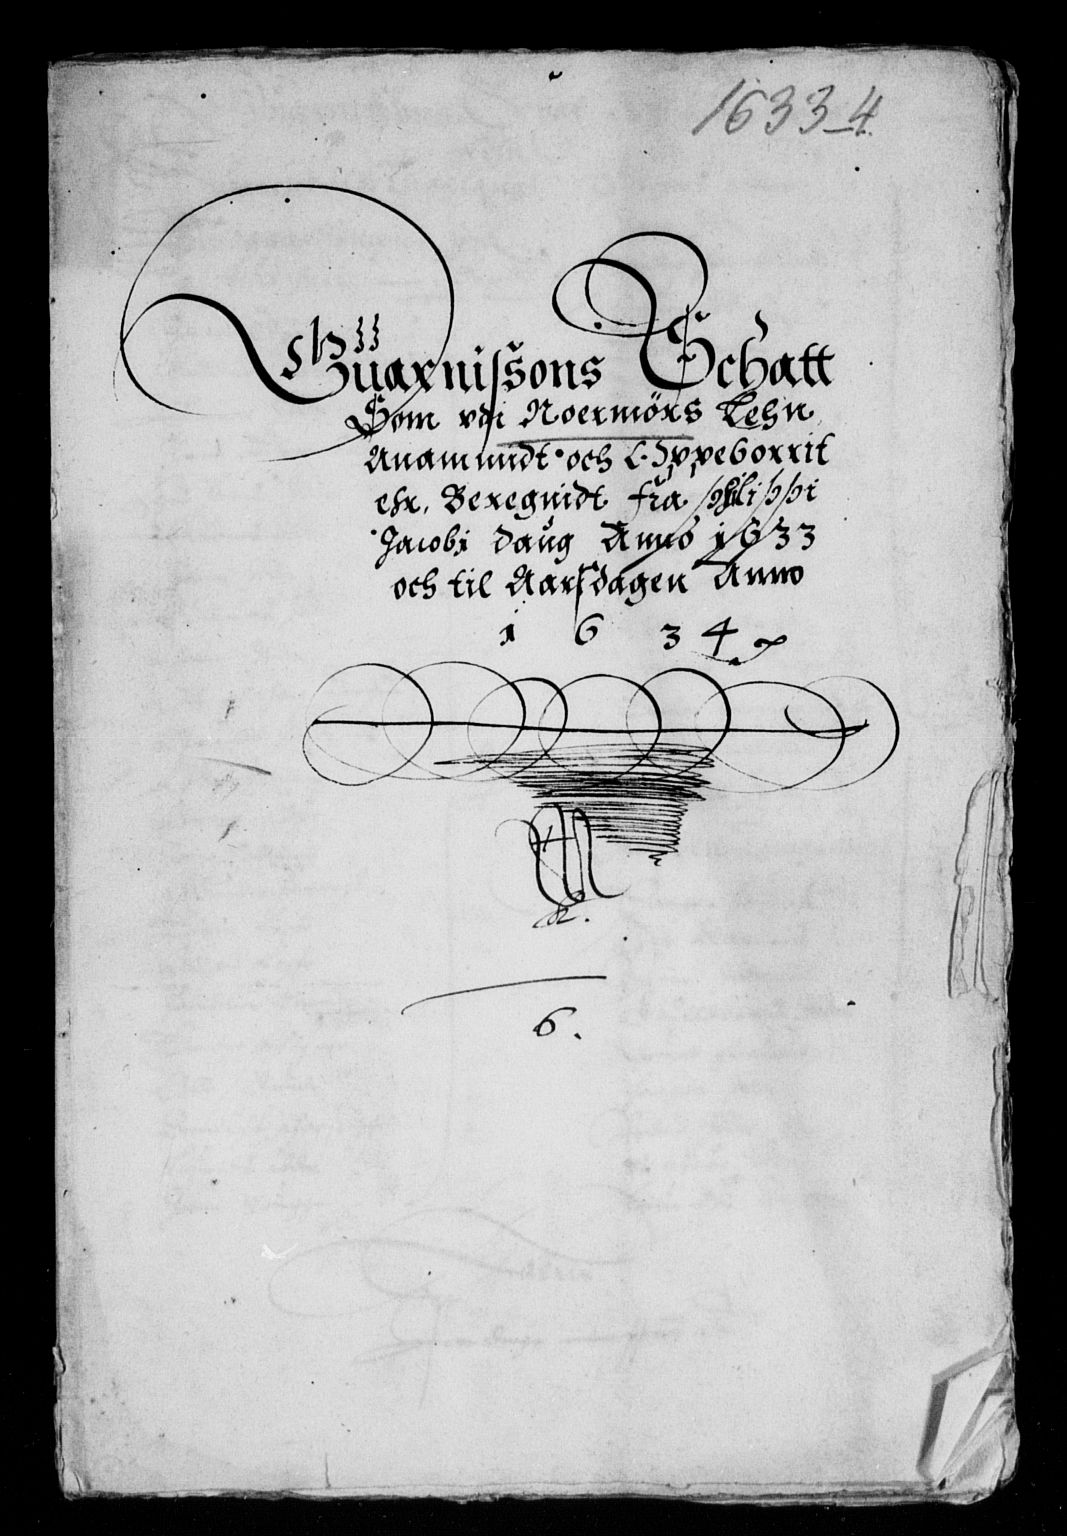 1633_4.
Guarnissons Schatt
Som vdi Noermörs Lehn
Anammidt och Oppeborrit
ehr, Beregnidt fra Philippi
Jacobi daug Anno 1633
och til Aarsdagen Anno
1 6 3 4
6.